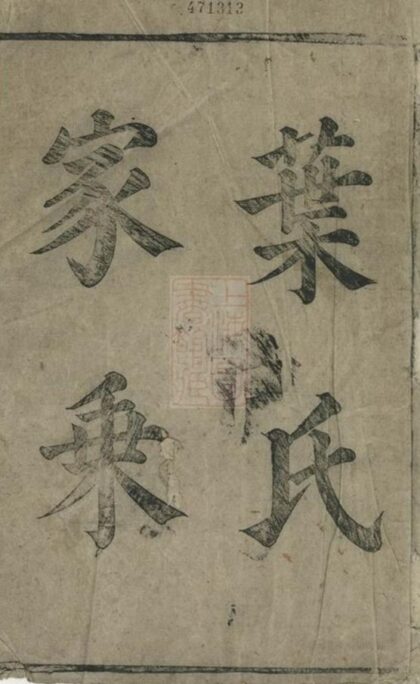 471313
葉氏
家乘